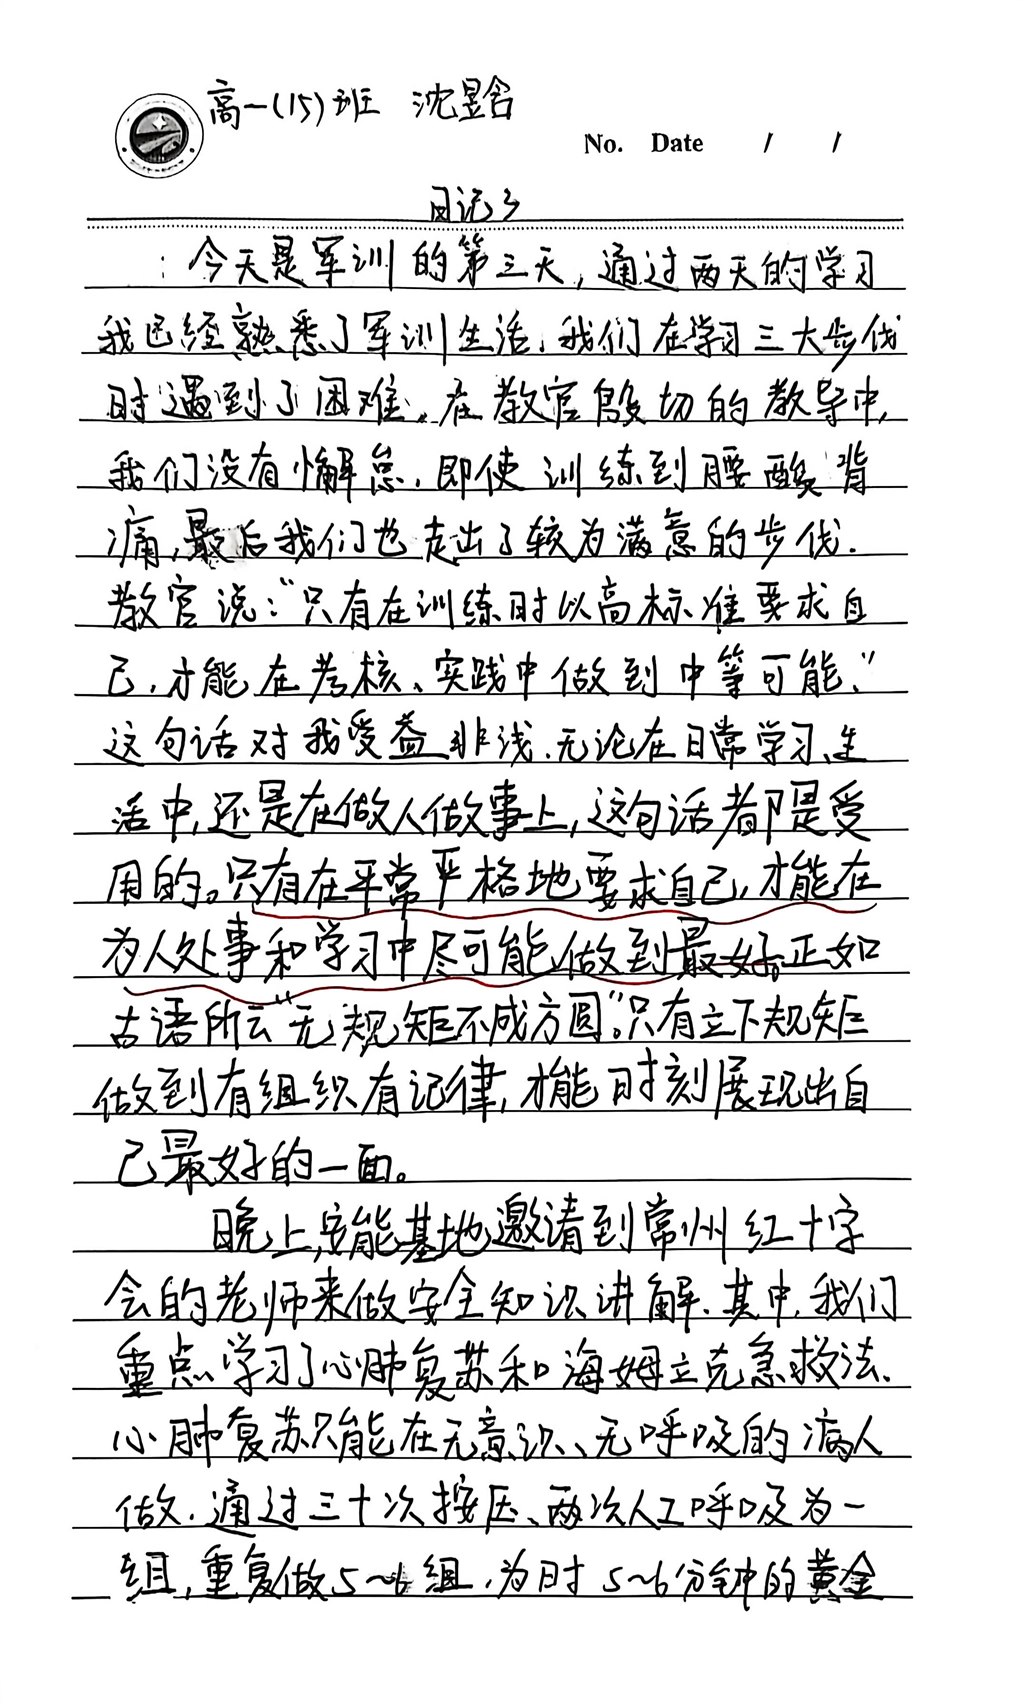 高一(15)班 沈昱含
No. Date / /
日记3
今天是军训的第三天,通过两天的学习
我已经熟悉了军训生活.我们在学习三大步伐
时遇到了困难.在教官殷切的教导中,
我们没有懈怠.即使训练到腰酸背
痛,最后我们也走出了较为满意的步伐.
教官说:“只有在训练时以高标准要求自
己.才能在考核、实践中做到中等可能.”
这句话对我受益非浅.无论在日常学习、生
活中,还是在做人做事上,这句话都是受
用的。只有在平常严格地要求自己,才能在
为人处事和学习中尽可能做到最好。正如
古语所云“无规矩不成方圆”。只有立下规矩
做到有组织有记律,才能时刻展现出自
己最好的一面。
晚上,安能基地邀请到常州红十字
会的老师来做安全知识讲解.其中,我们
重点学习了心肺复苏和海姆立克急救法.
心肺复苏只能在无意识、无呼吸的病人
做.通过三十次按压、两次人工呼吸为一
组,重复做5~6组.为时5~6分钟的黄金